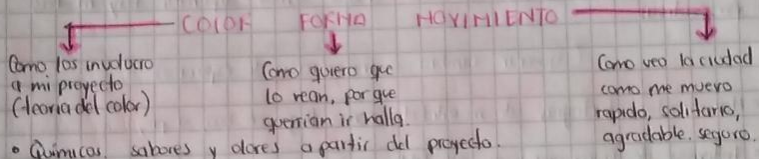 COLOR FORMA MOVIMIENTO
Como los involucro
a mi proyecto
(teoria del color)
Como quiero que
lo vean, por que
querrian ir halla.
Como veo la ciudad
como me muevo
rapido, solitario,
agradable. seguro.
• Quimicos, sabores y olores a partir del proyecto.